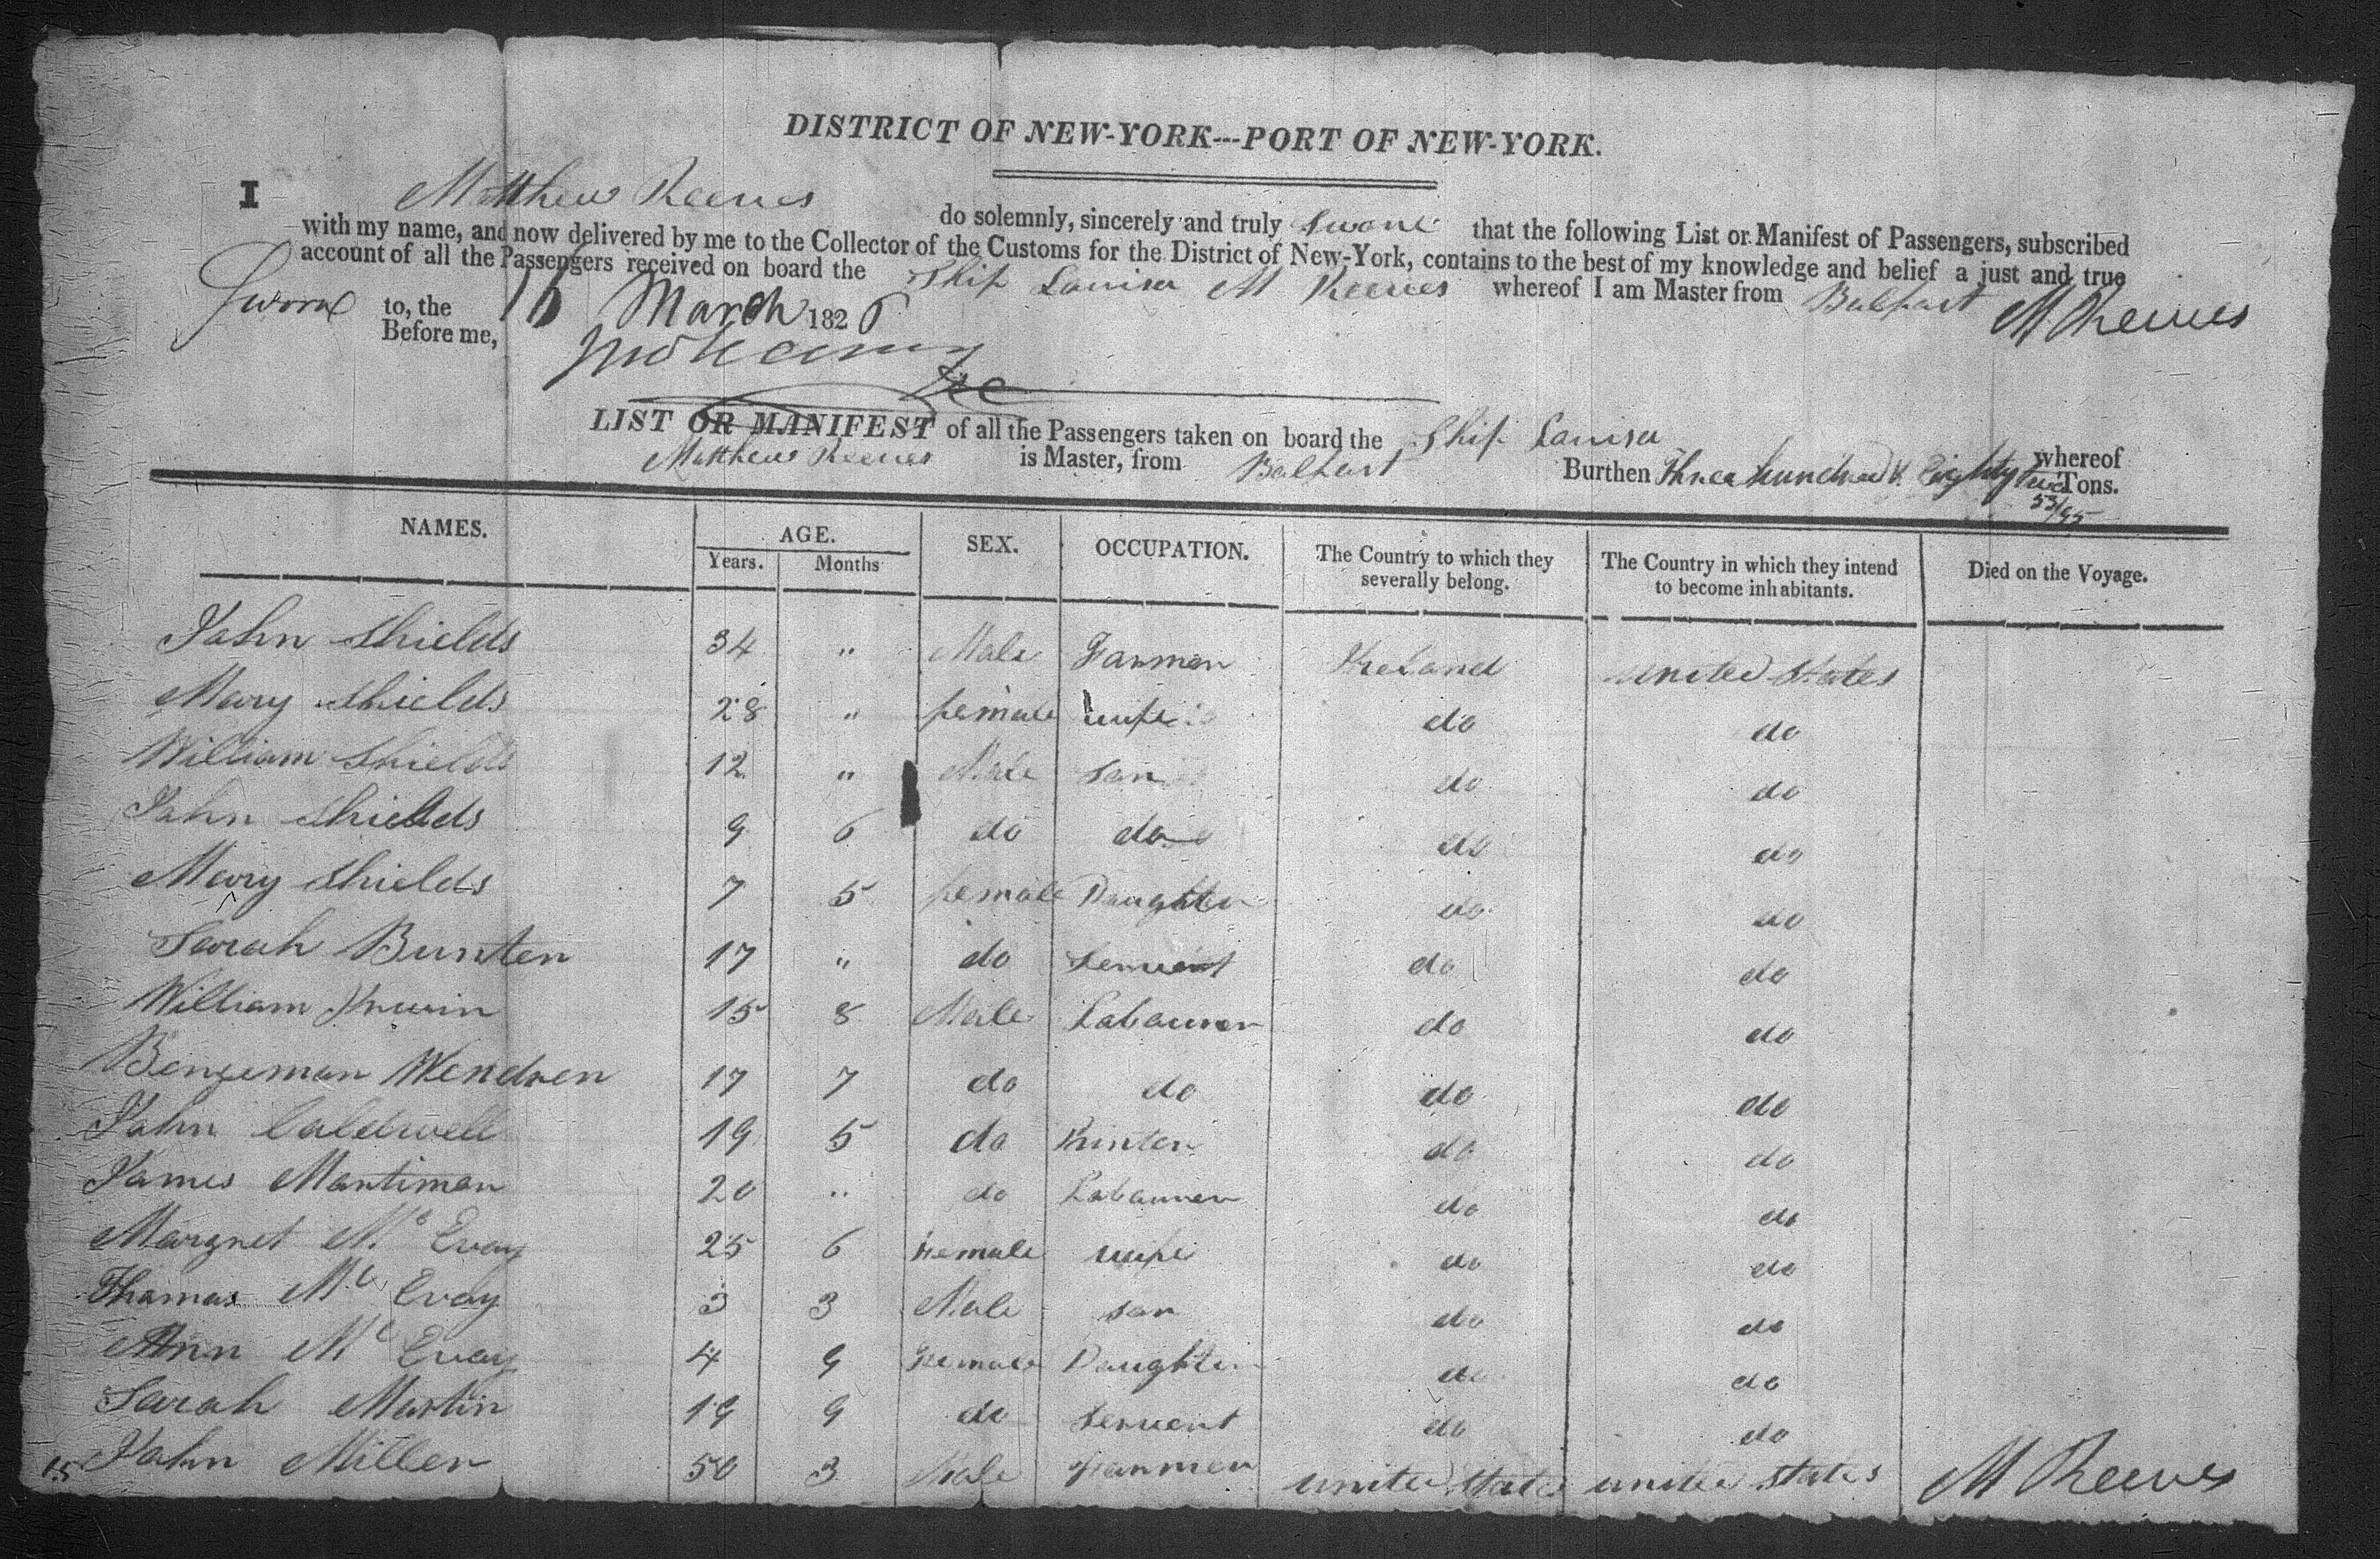 DISTRICT OF NEW-YORK---PORT OF NEW-YORK.
I Matthew Reeves do solemnly, sincerely and truly Swore that the following List or Manifest of Passengers, subscribed
with my name, and now delivered by me to the Collector of the Customs for the District of New-York, contains to the best of my knowledge and belief a just and true
account of all the Passengers received on board the Ship Louisa M Reeves whereof I am Master from Balfast
Sworn to, the 16 March 1826 M Reeves
Before me,
LIST OR MANIFEST of all the Passengers taken on board the Ship Louisa whereof
Matthew Reeves is Master, from Balfast Burthen Three hundred & Eighty Two 53/95 Tons.
NAMES. AGE. SEX. OCCUPATION. The Country to which they severally belong. The Country in which they intend to become inhabitants. Died on the Voyage.
Years. Months
John Shields 34 " Male Farmer Ireland United States
Mary Shields 28 " female wife do do
William Shields 12 " Male Son do do
John Shields 9 6 do do do do
Mary Shields 7 5 female Daughter do do
Sarah Bunten 17 " do Servent do do
William Irwin 15 8 Male Labourer do do
Bengeman Wendren 17 7 do do do do
John Caldwell 19 5 do Printer do do
James Martimer 20 " do Labourer do do
Margret Mc Evoy 25 6 Female wife do do
Thomas Mc Evoy 3 3 Male son do do
Ann Mc Evoy 4 9 Female Daughter do do
Sarah Martin 19 9 do Servent do do
15 John Miller 50 3 Male Farmer United States United States M Reeves